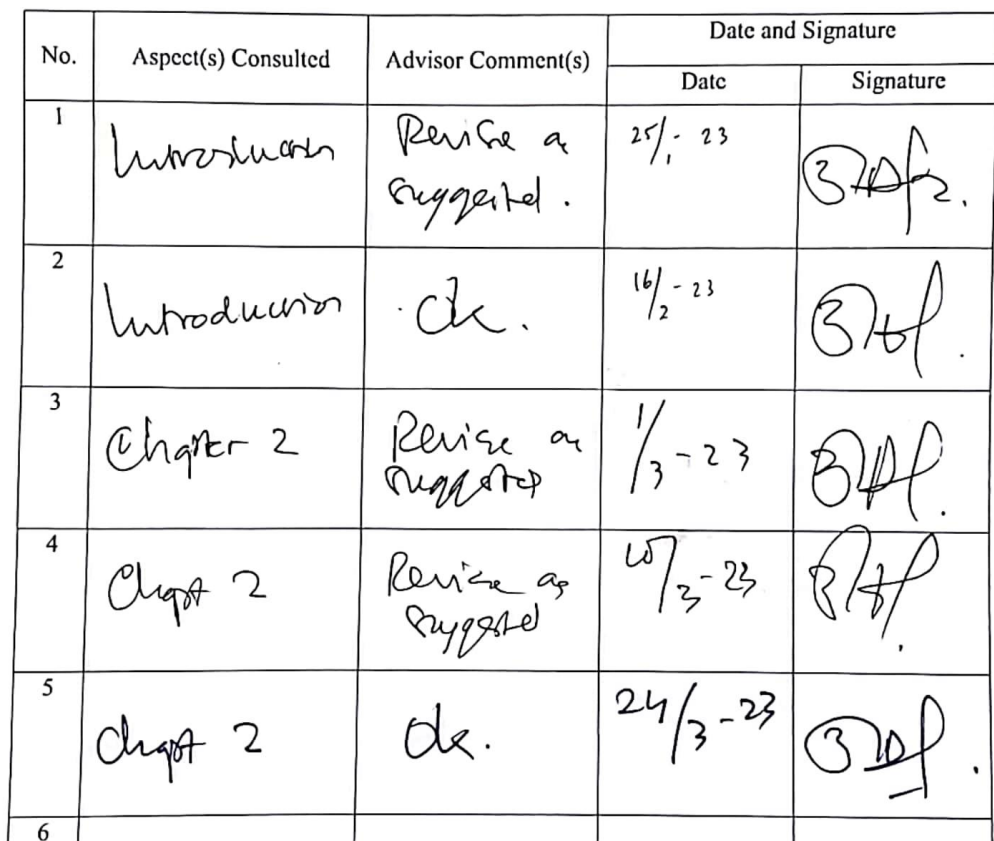 No.
Aspect(s) Consulted
Advisor Comment(s)
Date and Signature
Date
Signature
1
Introduction
Revise as
suggested.
25/1-23
2
Introduction
Ok.
16/2-23
3
Chapter 2
Revise as
suggested
1/3-23
4
Chapt 2
Revise as
suggested
/3-23
5
Chapt 2
Ok.
24/3-23
6